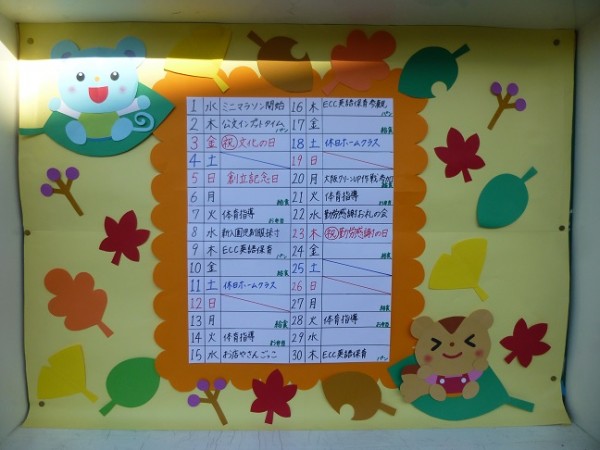 1 水 ミニマラソン開始
2 木 公文インプットタイム パン
3 金 祝 文化の日
4 土
5 日 創立記念日
6 月 給食
7 火 体育指導 お弁当
8 水 新入園児制服採寸
9 木 ECC英語保育 パン
10 金 給食
11 土 休日ホームクラス
12 日
13 月 給食
14 火 体育指導 お弁当
15 水 お店やさんごっこ
16 木 ECC英語保育参観 パン
17 金 給食
18 土 休日ホームクラス
19 日
20 月 大阪クリーンUP作戦参加 給食
21 火 体育指導 お弁当
22 水 勤労感謝お礼の会
23 木 祝 勤労感謝の日
24 金 給食
25 土
26 日
27 月 給食
28 火 体育指導 お弁当
29 水
30 木 ECC英語保育 パン